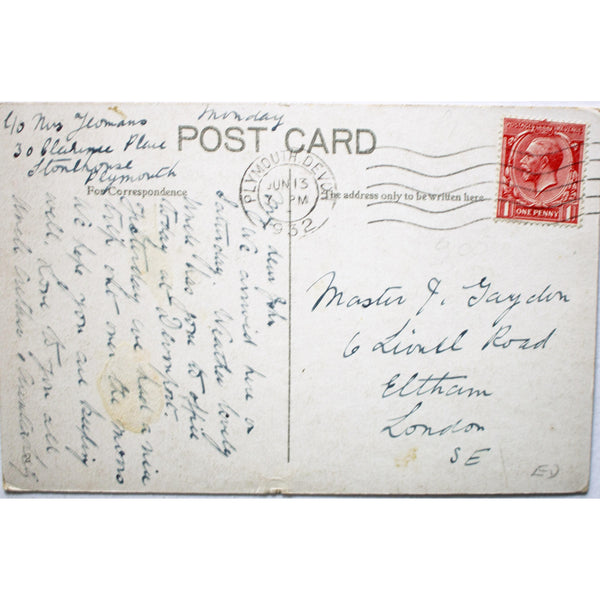 c/o Mrs Yeomans
Monday
30 Clarence Place
Stonehouse
Plymouth
POST CARD
For Correspondence
The address only to be written here
PLYMOUTH. DEVON
JUN 13
PM
1932
POSTAGE REVENUE
1 ONE PENNY 1
My dear John
We arrived here on
Saturday. Weather lovely
Uncle has gone to
today at Devonport
Yesterday we had a nice
out over the moors
We hope you are keeping
well. Love to you all
Uncle Arthur &
Master J. Gaydon
6 Lionel Road
Eltham
London
SE
ED